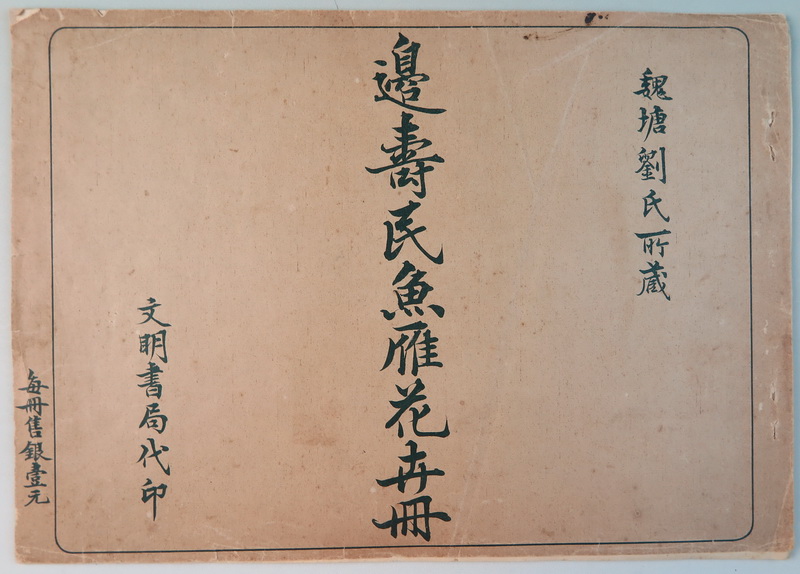 魏塘劉氏所藏
邊壽民魚雁花卉冊
文明書局代印
每冊售銀壹元